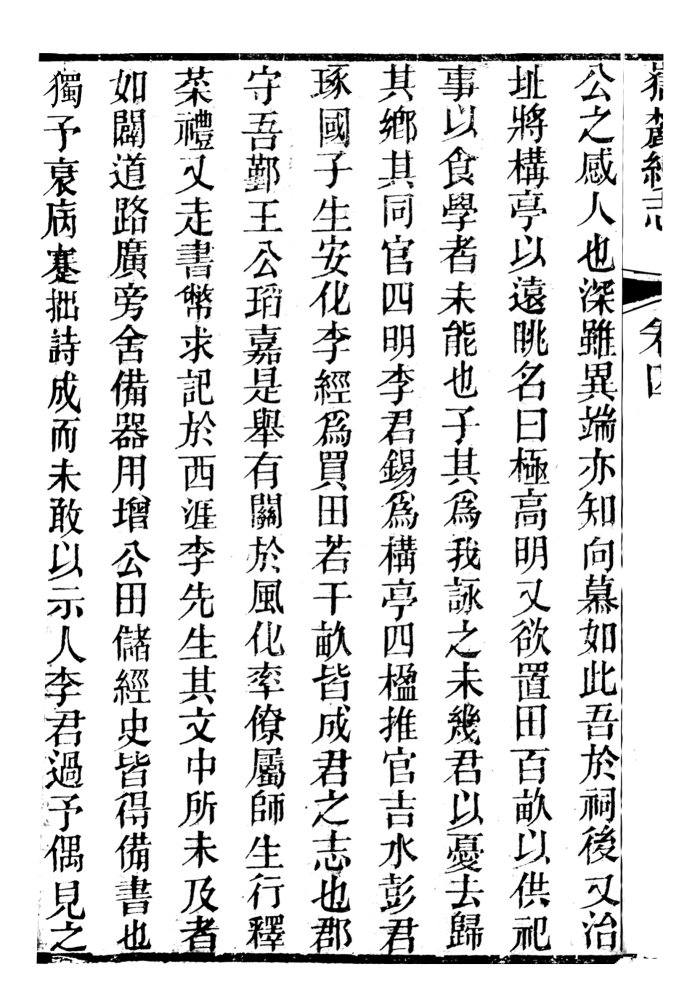 嶽麓續志 卷四
公之感人也深雖異端亦知向慕如此吾於祠後又治
址將構亭以遠眺名曰極高明又欲置田百畝以供祀
事以食學者未能也子其爲我詠之未幾君以憂去歸
其鄉其同官四明李君錫爲構亭四楹推官吉水彭君
琢國子生安化李經爲買田若干畝皆成君之志也郡
守吾鄞王公瑫嘉是舉有關於風化率僚屬師生行釋
菜禮又走書幣求記於西涯李先生其文中所未及者
如闢道路廣旁舍備器用增公田儲經史皆得備書也
獨予衰病蹇拙詩成而未敢以示人李君過予偶見之